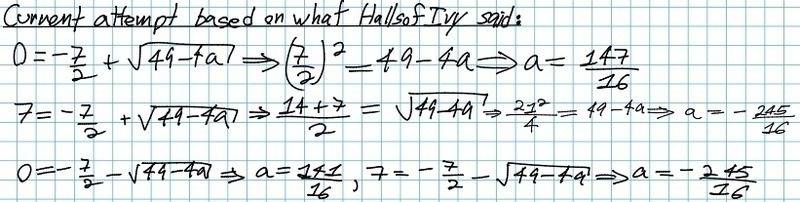 Current attempt based on what HallsofIvy said:
0 = -7/2 + √(49-4a) ⇒ (7/2)² = 49-4a ⇒ a = 147/16
7 = -7/2 + √(49-4a) ⇒ (14+7)/2 = √(49-4a) ⇒ 21²/4 = 49-4a ⇒ a = -245/16
0 = -7/2 - √(49-4a) ⇒ a = 141/16, 7 = -7/2 - √(49-4a) ⇒ a = -245/16